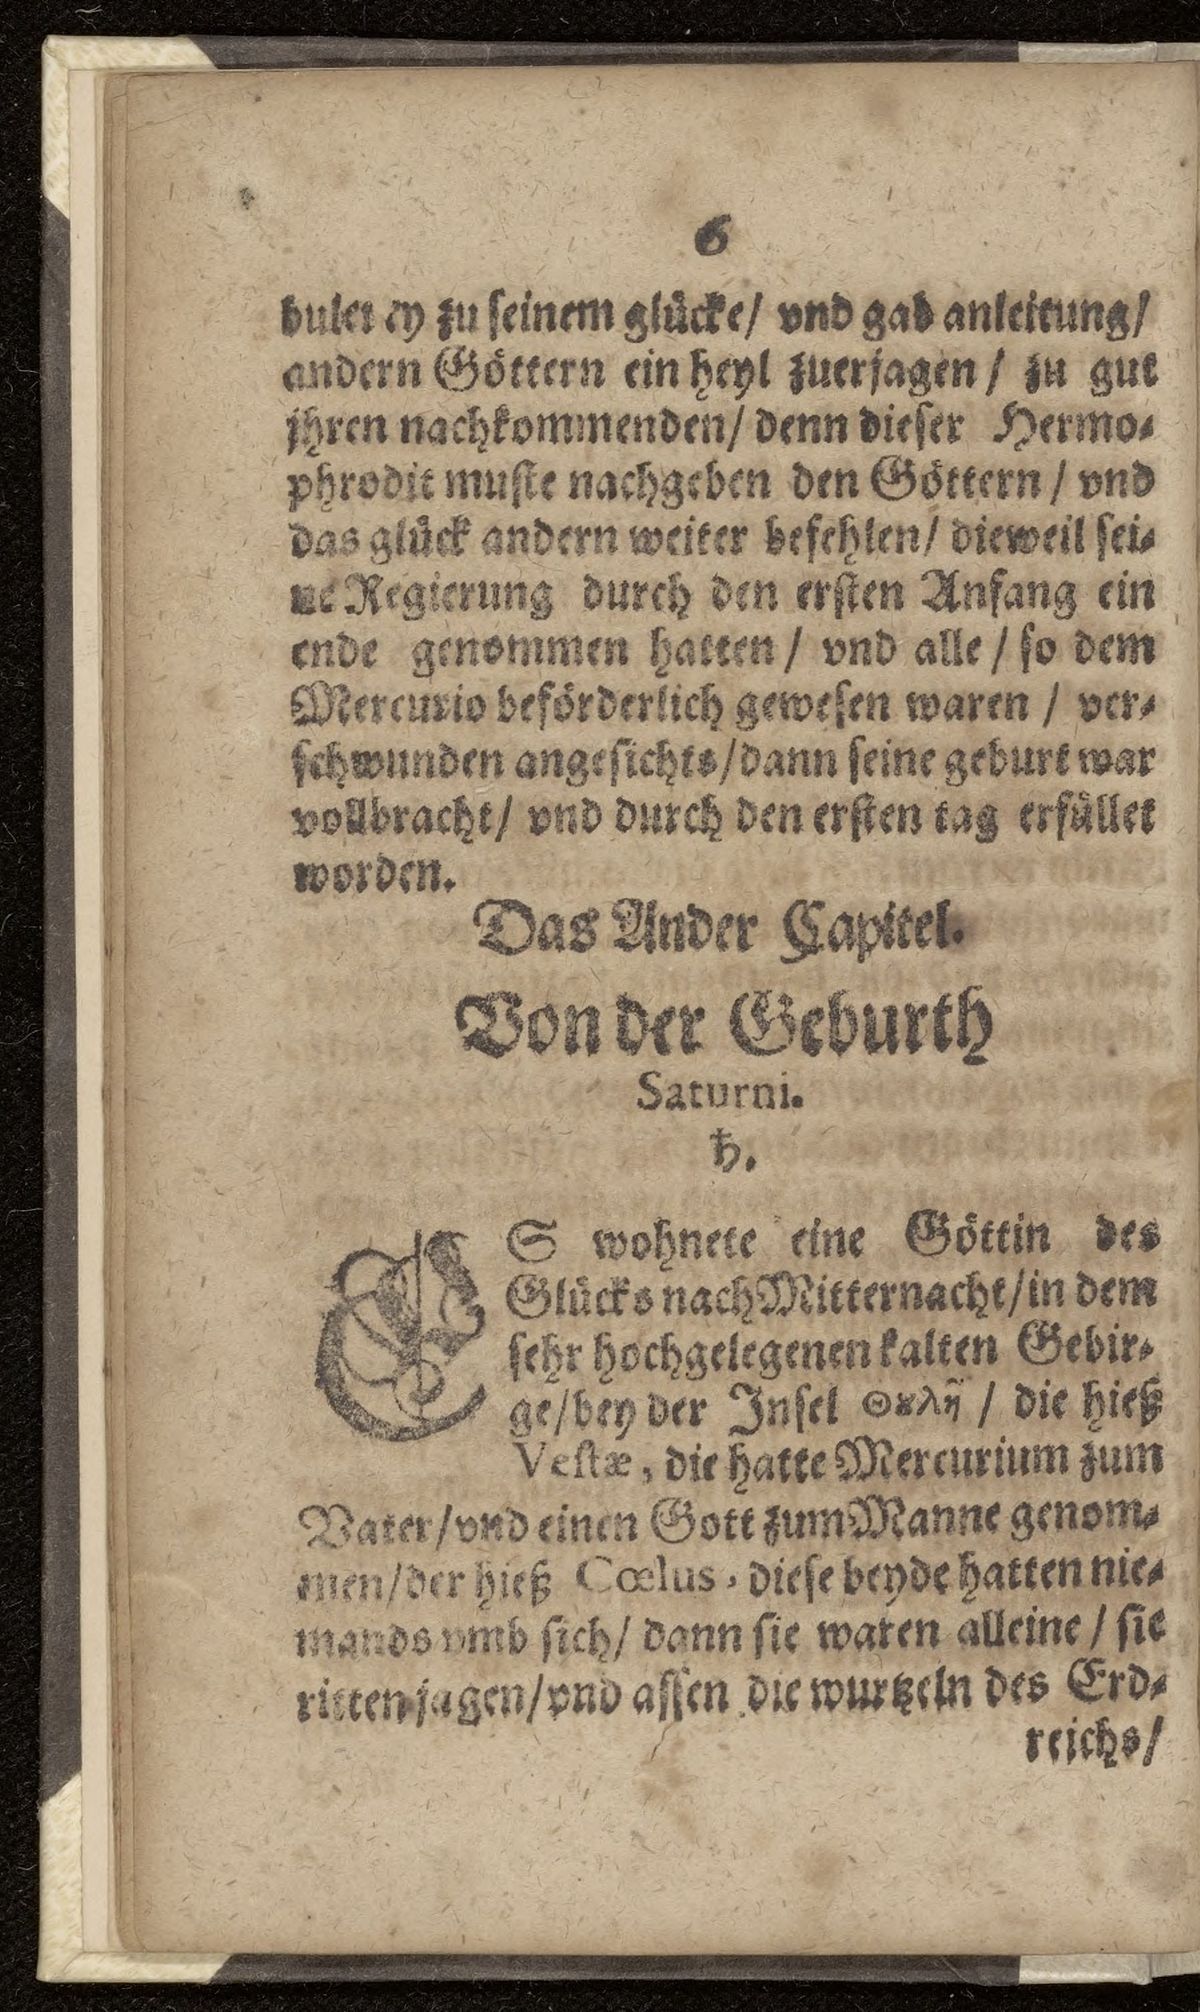 6
bulerey zu seinem glücke/ vnd gab anleitung/
andern Göttern ein heyl zuerjagen/ zu gut
jhren nachkommenden/ denn dieser Hermo⸗
phrodit muste nachgeben den Göttern/ vnd
das glück andern weiter befehlen/ dieweil sei⸗
ne Regierung durch den ersten Anfang ein
ende genommen hatten/ vnd alle/ so dem
Mercurio beförderlich gewesen waren/ ver⸗
schwunden angesichts/dann seine geburt war
vollbracht/ vnd durch den ersten tag erfüllet
worden.
Das Ander Capitel.
Von der Geburth
Saturni.
♄.
ES wohnete eine Göttin des
Glücks nach Mitternacht/in dem
sehr hochgelegenen kalten Gebir⸗
ge/bey der Insel Θȣλῆ / die hieß
Vestæ, die hatte Mercurium zum
Vater/vnd einen Gott zum Manne genom⸗
men/der hieß Cœlus, diese beyde hatten nie⸗
mands vmb sich/ dann sie waren alleine/ sie
ritten jagen/vnd assen die wurtzeln des Erd⸗
reichs/